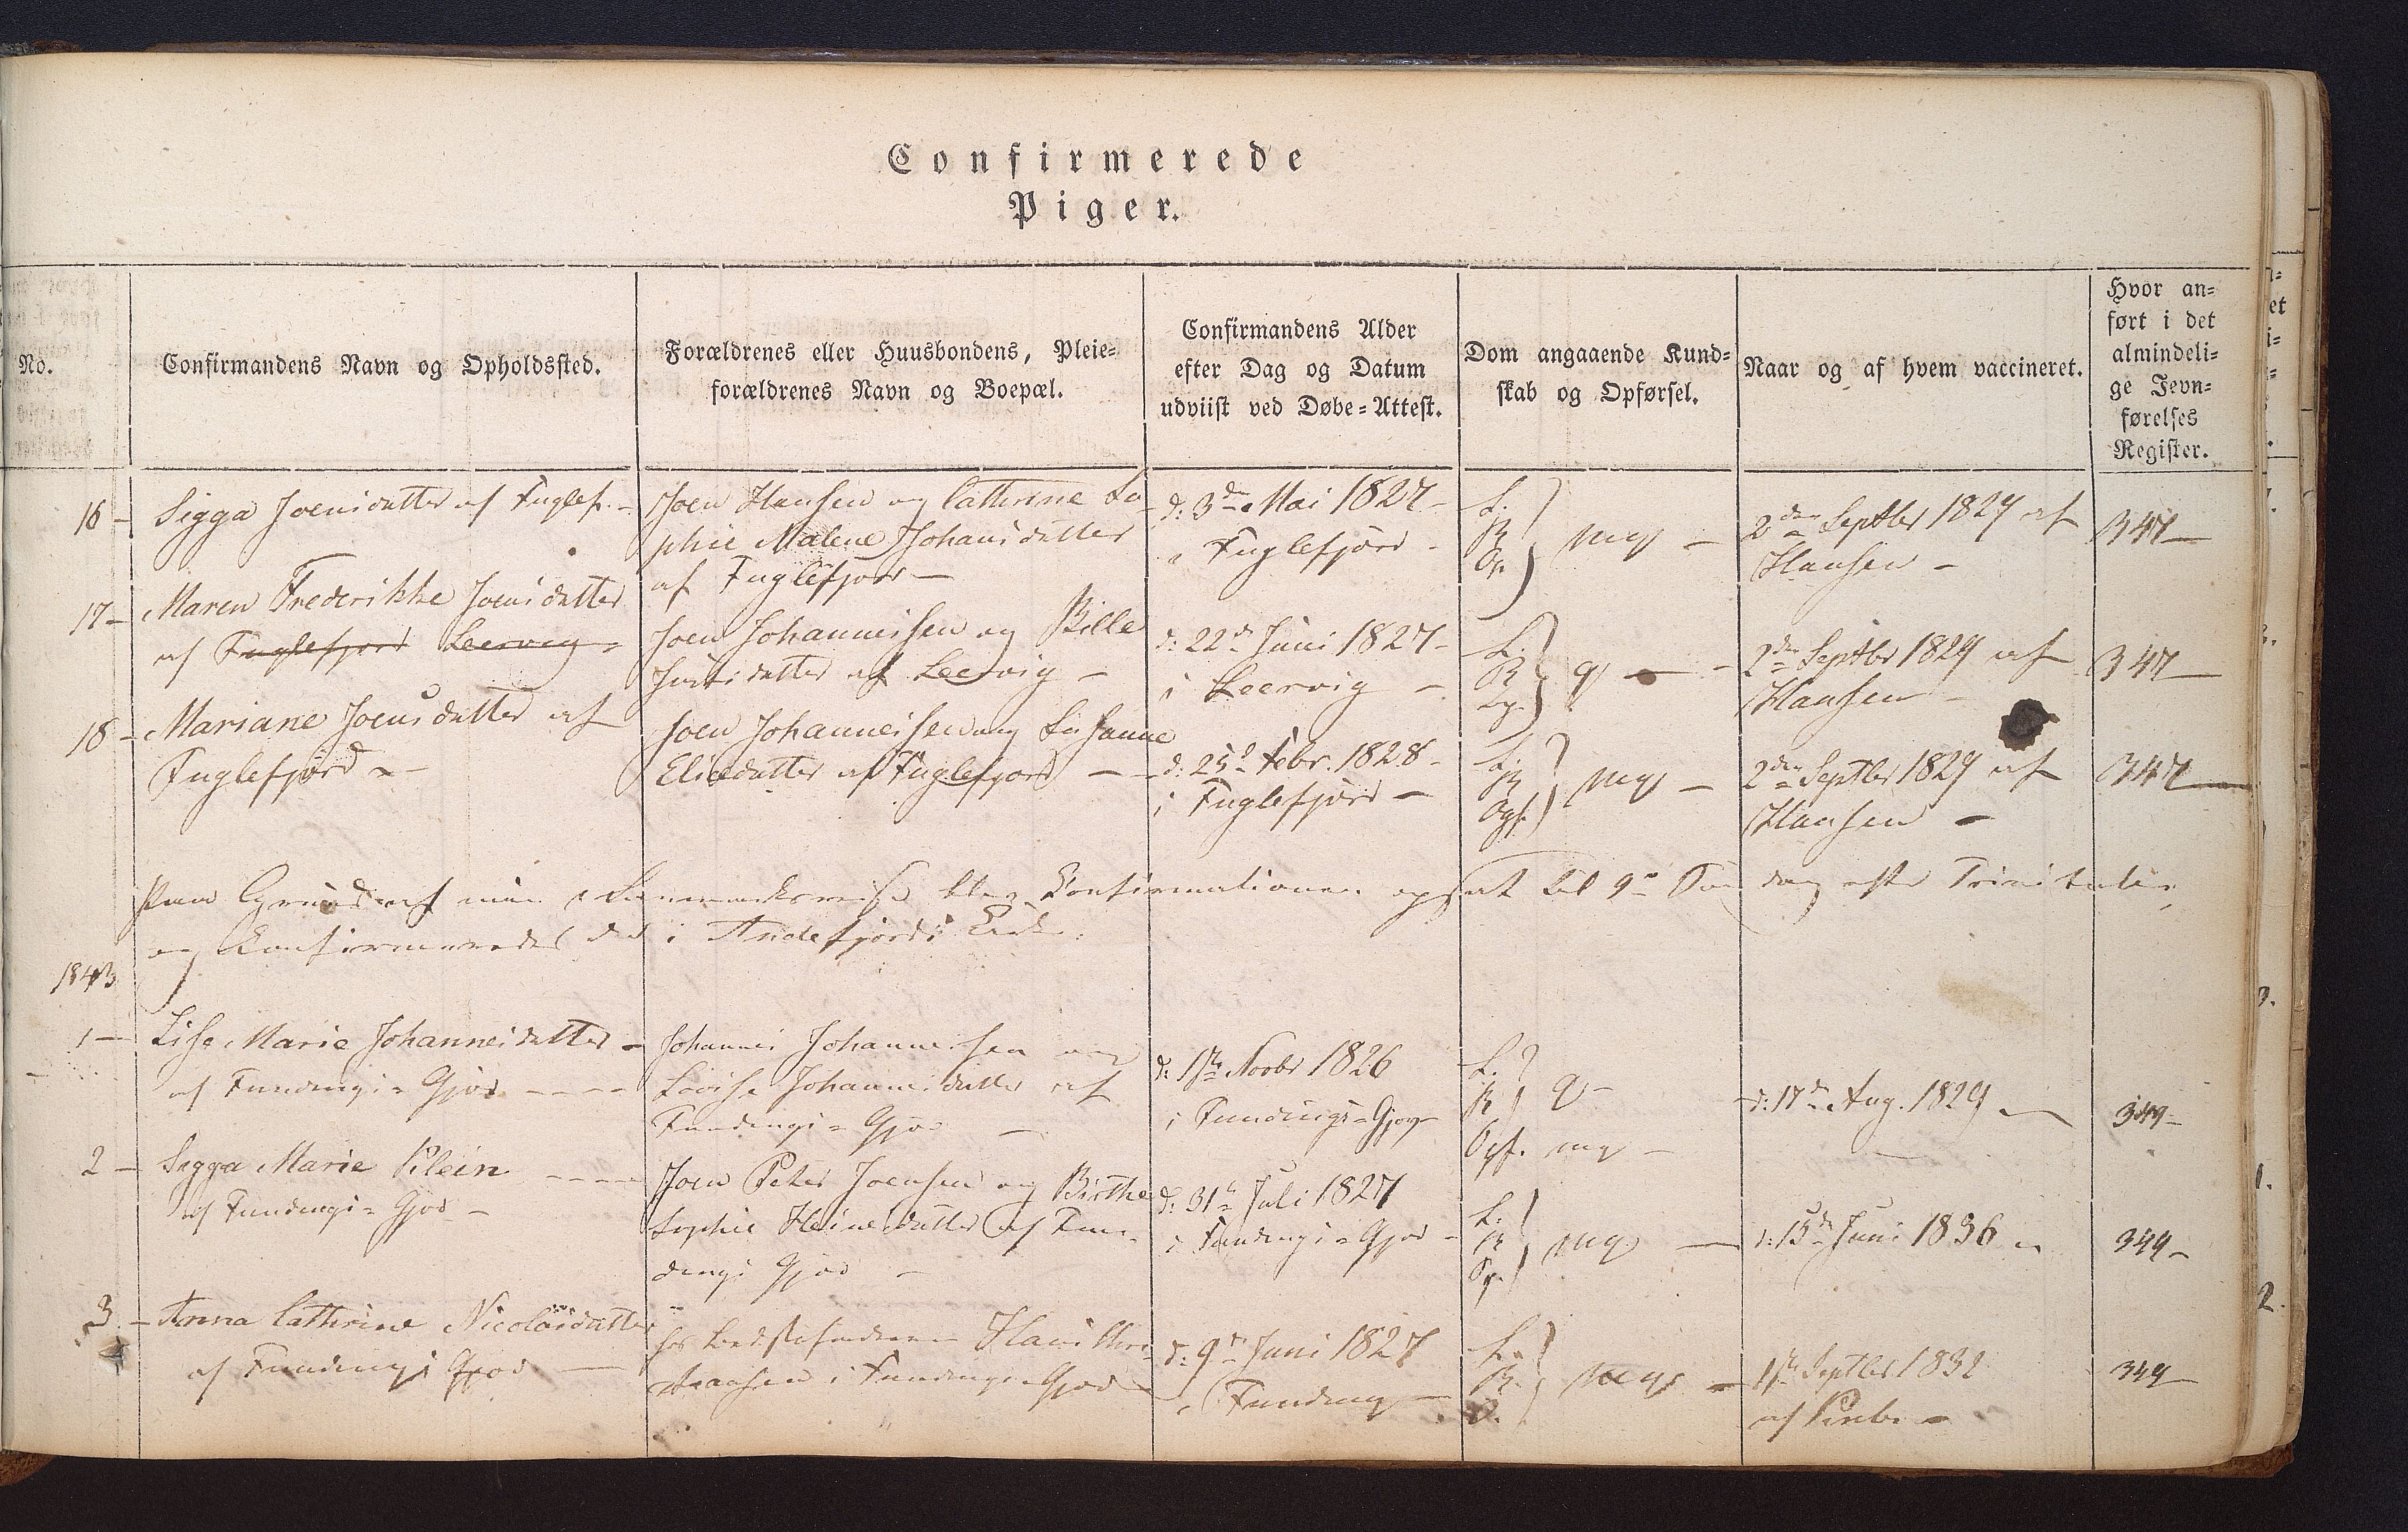 Confirmerede
Piger.
No.
Confirmandens Navn og Opholdssted.
Forældrenes eller Huusbondens, Pleie=
forældrenes Navn og Boepæl.
Confirmandens Alder
efter Dag og Datum
udviist ved Døbe=Attest.
Dom angaaende Kund=
skab og Opførsel.
Naar og af hvem vaccineret.
Hvor an=
ført i det
almindeli=
ge Jevn=
førelses
Register.
16 - Sigga Joensdatter af Fuglef. -
Joen Hansen og Cathrine So
phie Malene Johansdatter
af Fuglefjord -
d: 3de Mai 1827 -
i Fuglefjord -
L.
R
Op.
mg -
2den Septbr 1829 af
Hansen -
347 -
17 - Maren Frederikke Joensdatter
af Fuglefjord Leervig -
Joen Johannessen og Bille
datter af Leervig -
d: 22de Juni 1827 -
i Leervig -
L.
R
g -
2den Septbr 1829 af
Hansen -
347 -
18 - Mariane Joensdatter af
Fuglefjord -
Joen Johannessen og Susanne
Eliedatter af Fuglefjord -
d: 25de Febr. 1828 -
i Fuglefjord -
L.
R
Opf.
mg -
2den Septbr 1829 af
Hansen -
347 -
Paa Grund af min Danmarksreise blev Confirmationen opsat til 9de Søndag efter Trinitatis,
og Confirmeredes da i Andefjords Kirke.
1843
1 - Lise Marie Johannesdatter -
af Fundings=Gjov -
Johannes Johannesen og
Lovise Johannesdatter af
Fundings=Gjov -
d: 1ste Novbr 1826
i Fundings=Gjov
L.
R
g -
Opf. mg -
d: 17de Aug. 1829
349 -
2 - Sigga Marie Klein
af Fundings=Gjov -
Joen Peter Joensen og Birthe
Sophie Heinesdatter af Fun-
dings Gjov -
d: 31te Juli 1827
i Fundings=Gjov -
L.
R
Op.
mg -
d: 15de Juni 1836
349 -
3. - Anna Cathrine Nicolaidatter
af Fundings Gjov -
hos Bedstefaderen Hans Chri-
stiansen i Fundings=Gjov
d: 9de Juni 1827
i Funding -
L.
R.
O.
mg -
1ste Septbr 1832
af
349 -